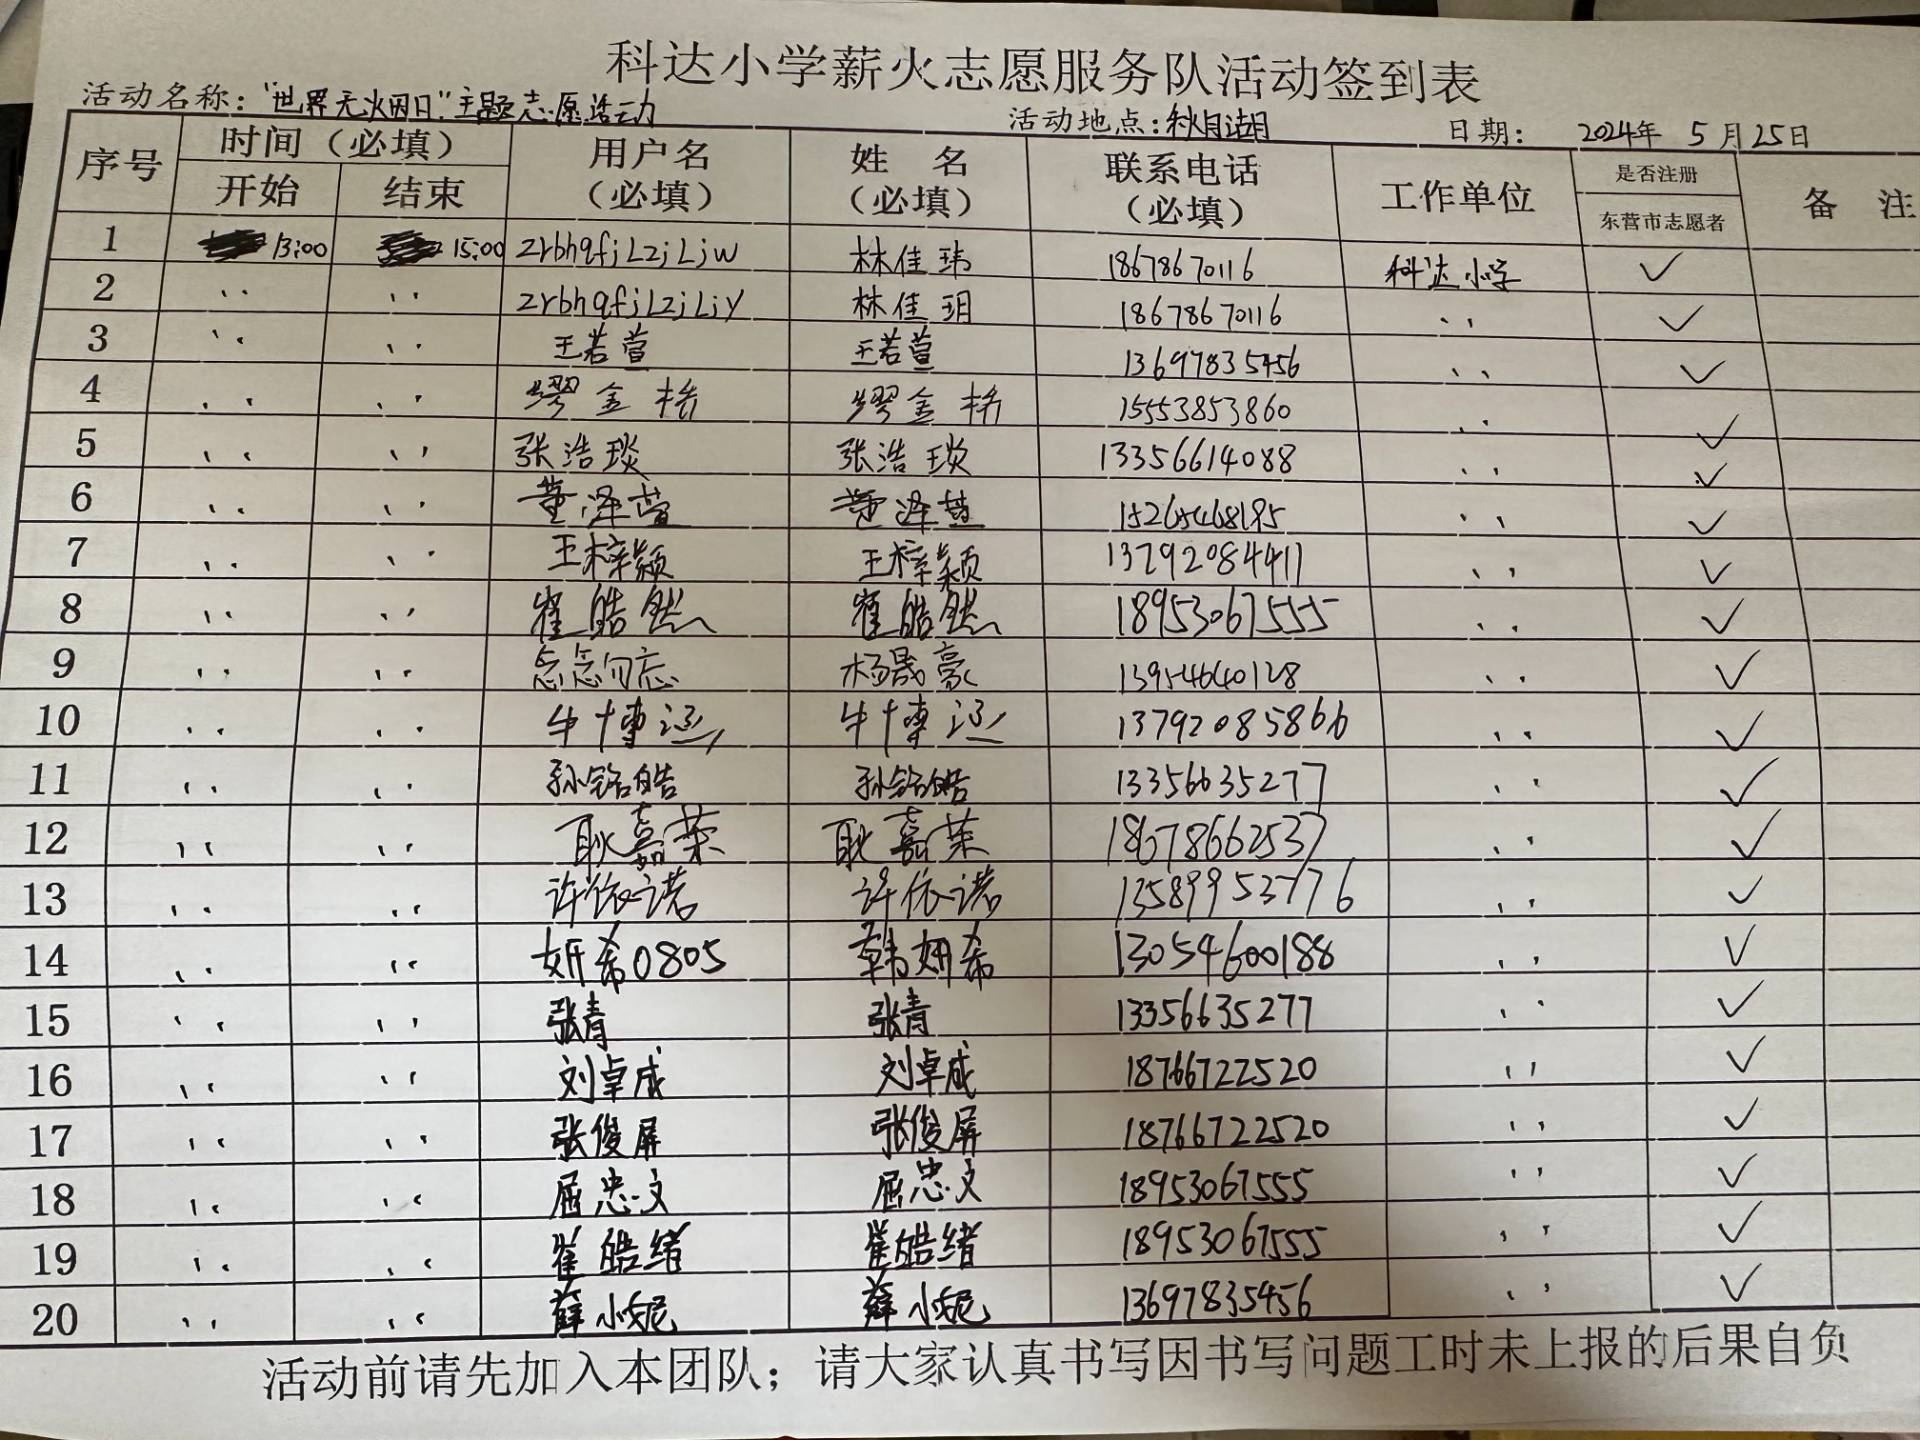 科达小学薪火志愿服务队活动签到表
活动名称："世界无火因日"主题志愿活动 活动地点：秋月湖 日期： 2024年 5月25日
序号 时间（必填） 用户名（必填） 姓 名（必填） 联系电话（必填） 工作单位 是否注册 备 注
开始 结束 东营市志愿者
1 13:00 15:00 zrbhqfjLzjLjw 林佳玮 18678670116 科达小学 ✓
2 〃 〃 zrbhqfjLzjLjy 林佳玥 18678670116 〃 ✓
3 〃 〃 王若萱 王若萱 13697835456 〃 ✓
4 〃 〃 缪金格 缪金格 15553853860 〃 ✓
5 〃 〃 张浩琰 张浩琰 13356614088 〃 ✓
6 〃 〃 董泽萱 董泽萱 15265468195 〃 ✓
7 〃 〃 王梓颖 王梓颖 13792084411 〃 ✓
8 〃 〃 崔皓然 崔皓然 18953067555 〃 ✓
9 〃 〃 念念勿忘 杨晟豪 13954640128 〃 ✓
10 〃 〃 牛博涵 牛博涵 13792085866 〃 ✓
11 〃 〃 孙铭皓 孙铭皓 13356635277 〃 ✓
12 〃 〃 耿嘉荣 耿嘉荣 18678662537 〃 ✓
13 〃 〃 许依诺 许依诺 13589953776 〃 ✓
14 〃 〃 妍希0805 韩妍希 13054600188 〃 ✓
15 〃 〃 张青 张青 13356635277 〃 ✓
16 〃 〃 刘卓成 刘卓成 18766722520 〃 ✓
17 〃 〃 张俊屏 张俊屏 18766722520 〃 ✓
18 〃 〃 屈忠文 屈忠文 18953067555 〃 ✓
19 〃 〃 崔皓绪 崔皓绪 18953067555 〃 ✓
20 〃 〃 薛小妮 薛小妮 13697835456 〃 ✓
活动前请先加入本团队；请大家认真书写因书写问题工时未上报的后果自负